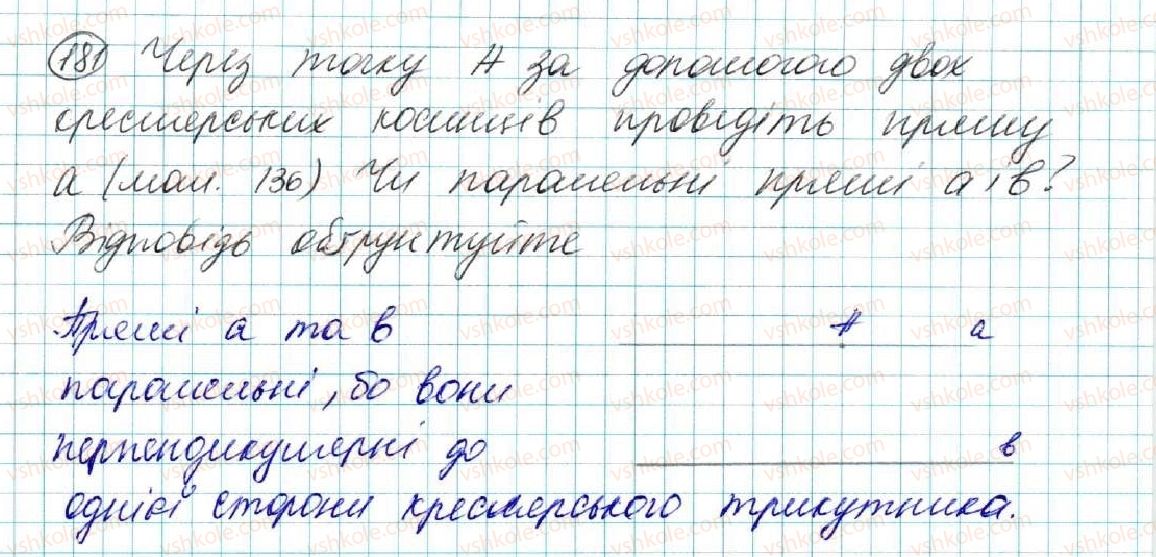 181 Через точку А за допомогою двох
креслярських косинців проведіть пряму
а (мал. 136) Чи паралельні прямі а і в?
Відповідь обґрунтуйте
Прямі а та в
А а
паралельні, бо вони
перпендикулярні до
в
однієї сторони креслярського трикутника.